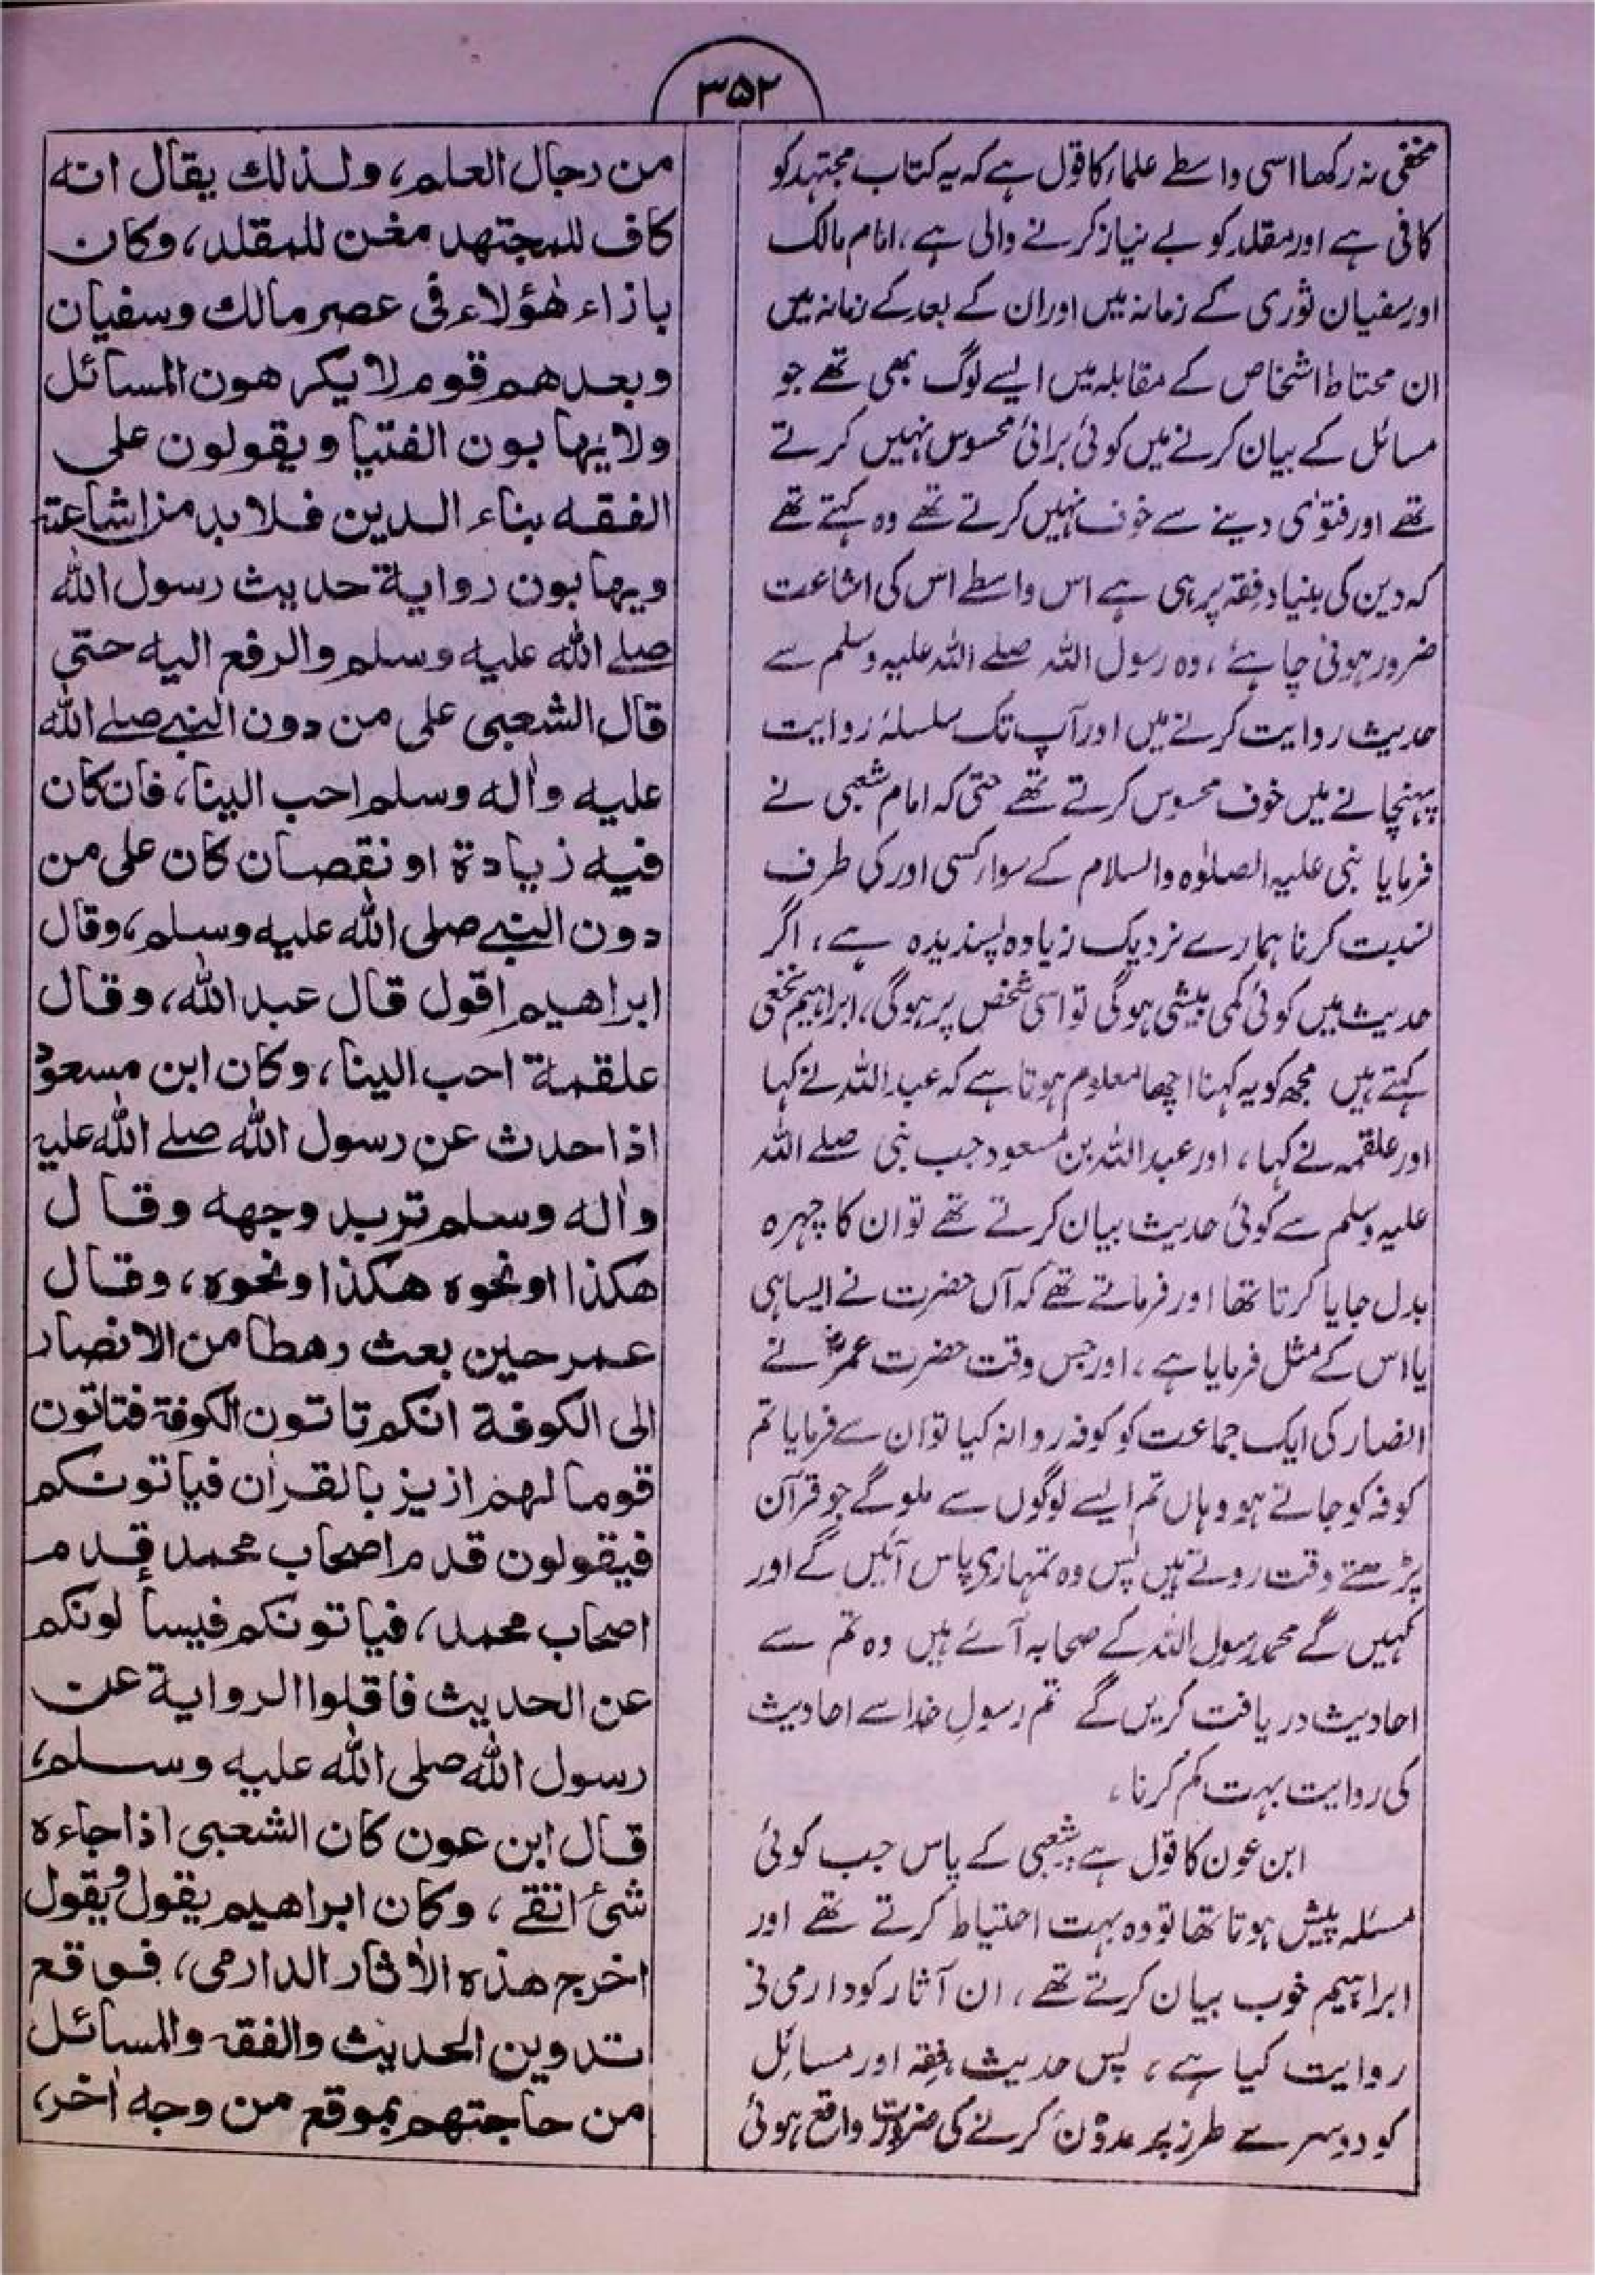 ۳۵۲
مخفی نہ رکھا اسی واسطے علماء کا قول ہے کہ یہ کتاب مجتہد کو
کافی ہے اور مقلد کو بے نیاز کرنے والی ہے، امام مالک
اور سفیان ثوری کے زمانہ میں اور ان کے بعد کے زمانہ میں
ان محتاط اشخاص کے مقابلہ میں ایسے لوگ بھی تھے جو
مسائل کے بیان کرنے میں کوئی برائی محسوس نہیں کرتے
تھے اور فتوٰی دینے سے خوف نہیں کرتے تھے وہ کہتے تھے
کہ دین کی بنیاد فقہ پر ہی ہے اس واسطے اس کی اشاعت
ضرور ہونی چاہئے، وہ رسول اللہ صلے اللہ علیہ وسلم سے
حدیث روایت کرنے میں اور آپ تک سلسلۂ روایت
پہنچانے میں خوف محسوس کرتے تھے حتی کہ امام شعبی نے
فرمایا نبی علیہ الصلوٰہ والسلام کے سوا ر کسی اور کی طرف
نسبت کرنا ہمارے نزدیک زیادہ پسندیدہ ہے، اگر
حدیث میں کوئی کمی بیشی ہوگی تو اسی شخص پر ہوگی، ابراہیم نخعی
کہتے ہیں مجھ کو یہ کہنا اچھا معلوم ہوتا ہے کہ عبد اللہ نے کہا
اور علقمہ نے کہا، اور عبد اللہ بن مسعود جب نبی صلے اللہ
علیہ وسلم سے کوئی حدیث بیان کرتے تھے تو ان کا چہرہ
بدل جایا کرتا تھا اور فرماتے تھے کہ آں حضرت نے ایسا ہی
یا اس کے مثل فرمایا ہے، اور جس وقت حضرت عمرؓ نے
انصار کی ایک جماعت کو کوفہ روانہ کیا تو ان سے فرمایا تم
کوفہ کو جاتے ہو وہاں تم ایسے لوگوں سے ملو گے جو قرآن
پڑھتے وقت روتے ہیں پس وہ تمہاری پاس آئیں گے اور
کہیں گے محمد رسول اللہ کے صحابہ آئے ہیں وہ تم سے
احادیث دریافت کریں گے تم رسولِ خدا سے احادیث
کی روایت بہت کم کرنا،
ابن عون کا قول ہے شعبی کے پاس جب کوئی
مسئلہ پیش ہوتا تھا تو وہ بہت احتیاط کرتے تھے اور
ابراہیم خوب بیان کرتے تھے، ان آثار کو دارمی نی
روایت کیا ہے، پس حدیث، فقہ اور مسائل
کو دوسرے طرز پر مدوّن کرنے کی ضرورت واقع ہوئی
من رجال العلم، ولذلك يقال انه
كاف للمجتهد مغن للمقلد، وكان
بازاء هٰؤلاء فى عصر مالك وسفيان
وبعدهم قوم لا يكرهون المسائل
ولا يهابون الفتيا ويقولون على
الفقه بناء الدين فلابد من اشاعته
ويهابون رواية حديث رسول الله
صلے الله عليه وسلم والرفع اليه حتى
قال الشعبى على من دون النبے صلے الله
عليه واٰله وسلم احب الينا، فان كان
فيه زيادة او نقصان كان على من
دون النبے صلى الله عليه وسلم، وقال
ابراهيم اقول قال عبد الله، وقال
علقمة احب الينا، وكان ابن مسعود
اذا حدث عن رسول الله صلے الله عليه
واٰله وسلم تربد وجهه وقال
هكذا او نحوه هكذا او نحوه، وقال
عمر حين بعث رهطا من الانصار
الى الكوفة انكم تاتون الكوفة فتاتون
قوما لهم ازيز بالقراٰن فياتونكم
فيقولون قدم اصحاب محمد قدم
اصحاب محمد، فياتونكم فيسألونكم
عن الحديث فاقلوا الرواية عن
رسول الله صلى الله عليه وسلم،
قال ابن عون كان الشعبى اذا جاءه
شئ اتقے، وكان ابراهيم يقول ويقول
اخرج هذه الاٰثار الدارمى، فوقع
تدوين الحديث والفقه والمسائل
من حاجتهم بموقع من وجه اٰخر،